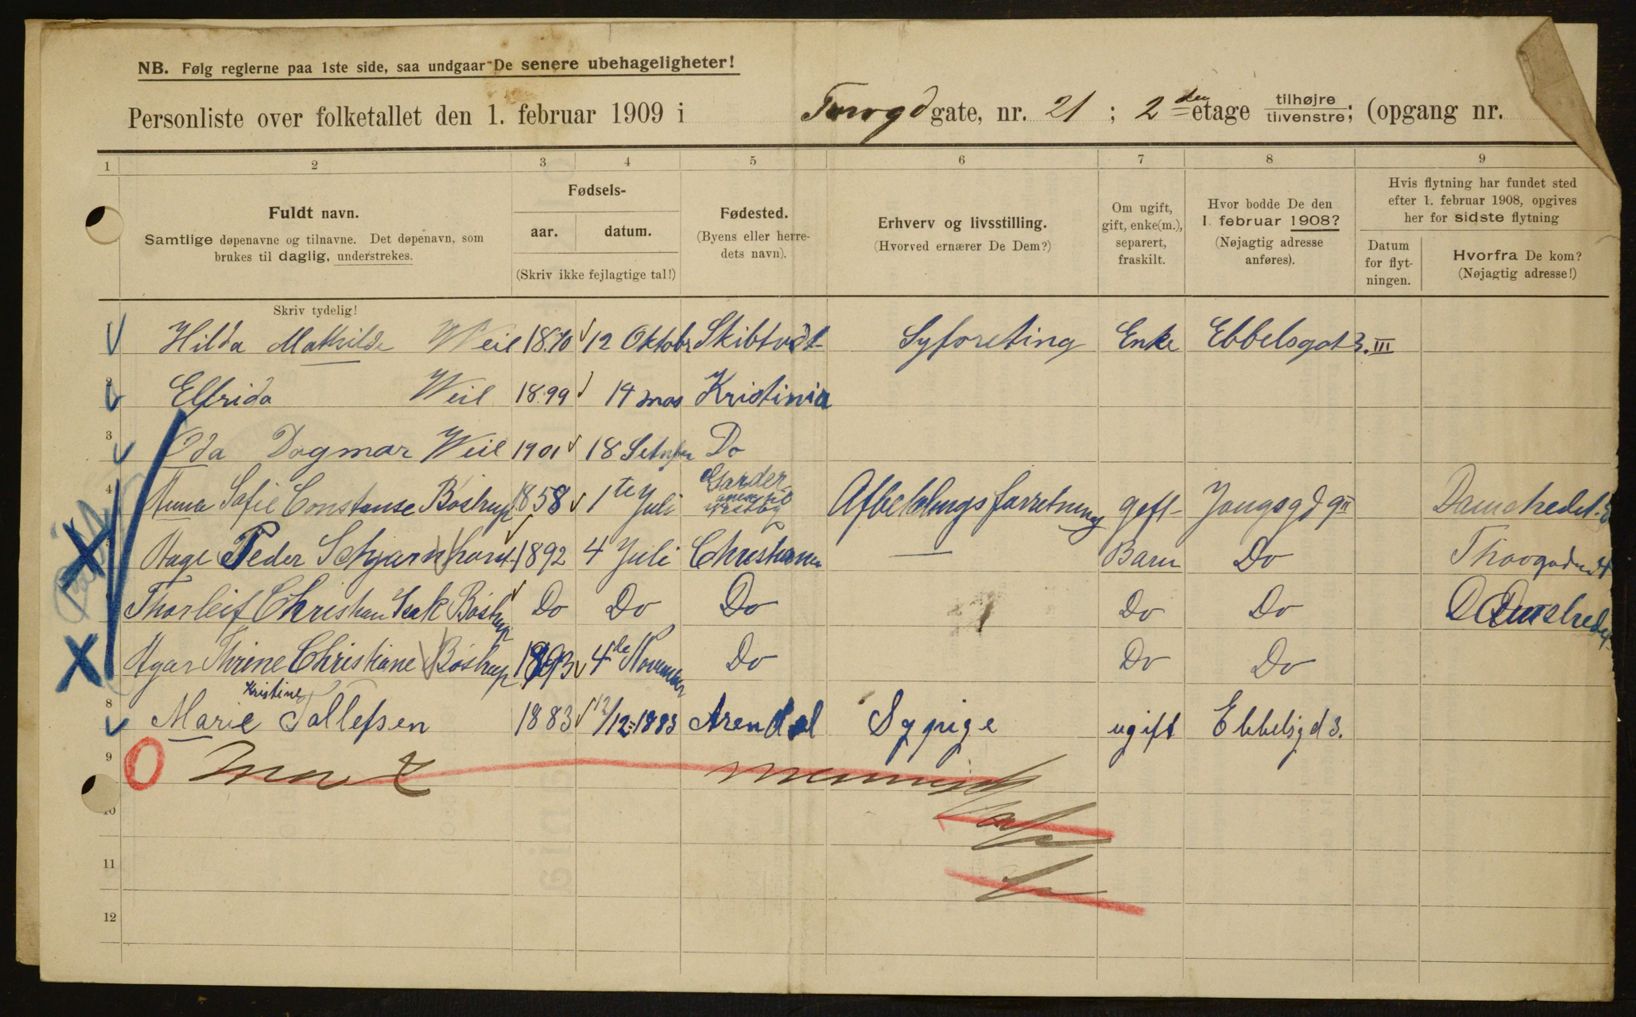 NB. Følg reglerne paa 1ste side, saa undgaar De senere ubehageligheter!
Personliste over folketallet den 1. februar 1909 i gate, nr. 21 ; 2den etage tilhøjre tilvenstre; (opgang nr.
1 2 3 4 5 6 7 8 9
Fuldt navn.
Samtlige døpenavne og tilnavne. Det døpenavn, som
brukes til daglig, understrekes.
Fødsels-
aar. datum.
(Skriv ikke fejlagtige tal!)
Fødested.
(Byens eller herre-
dets navn).
Erhverv og livsstilling.
(Hvorved ernærer De Dem?)
Om ugift,
gift, enke(m.),
separert,
fraskilt.
Hvor bodde De den
1. februar 1908?
(Nøjagtig adresse
anføres).
Hvis flytning har fundet sted
efter 1. februar 1908, opgives
her for sidste flytning
Datum
for flyt-
ningen.
Hvorfra De kom?
(Nøjagtig adresse!)
Skriv tydelig!
Hilda Mathilde Weil 1870 12 Oktobr Skibtvedt Syforetning Enke Ebbelsgat 3. III
Elfrida Weil 1899 14 mas Kristinia
3 Oda Dagmar Weil 1901 18 Do
4 Anna Sofie Constanse Bostrup 1858 1te Juli Afbetalings forretning gift
Aage Peder 1892 4 Juli Christiania — Barn Do
Thorleif Christian Isak Bostrup Do Do Do Do Do
Agar Thrine Christiane Bostrup 1893 4de November Do Do Do
8 Marie Kristine Tollefsen 1883 12/12-1883 Arendal Sypige ugift Ebbelsgd 3.
9
10
11
12